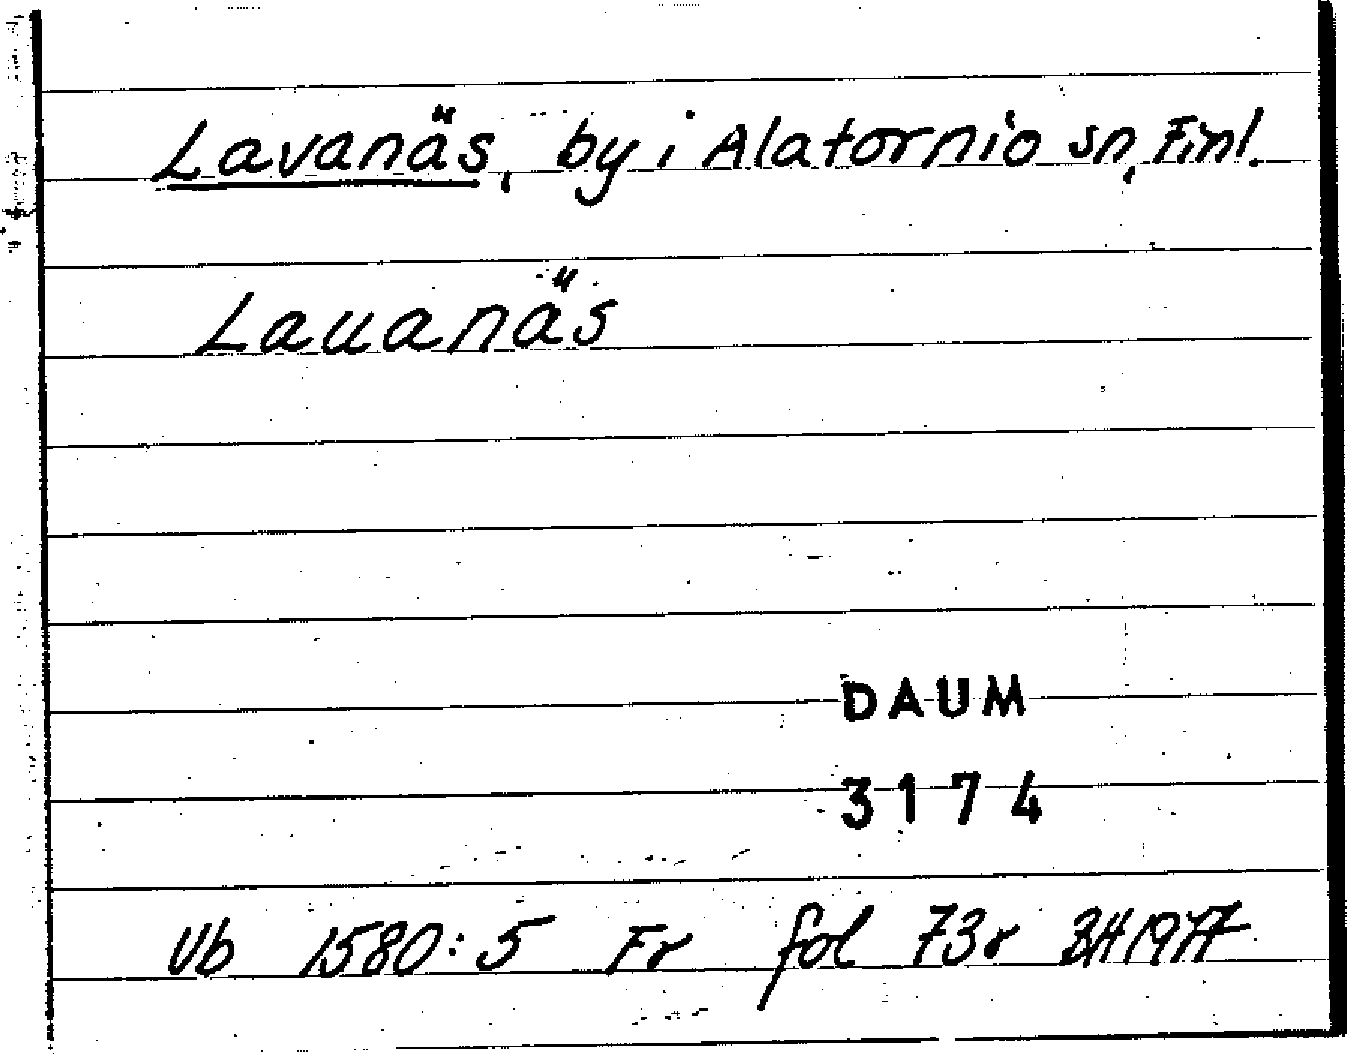 Lavanäs, by i Alatornio sn, Finl.
Lauanäs
DAUM
3174
Vb 1580:5 Fr fol 73r 1977